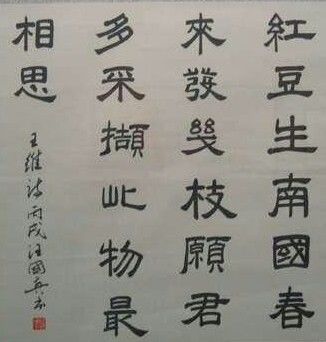 紅豆生南國春
來發幾枝願君
多采擷此物最
相思
王維詩丙戌汪國真書